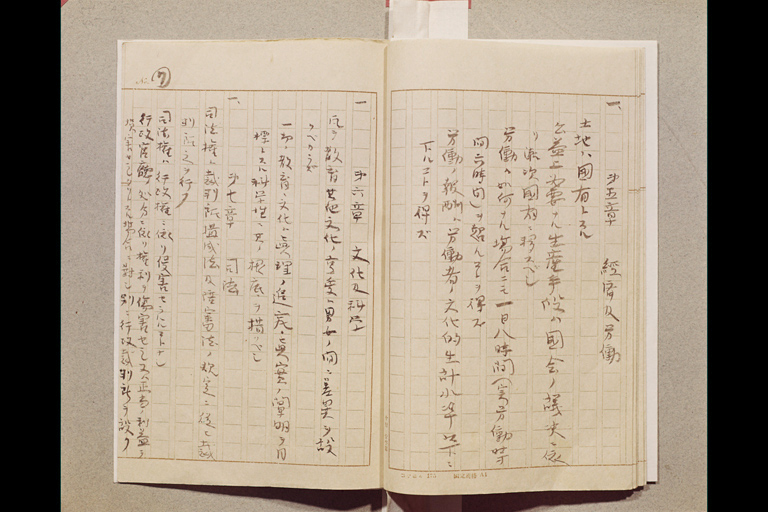 第五章 経済及労働
一、土地ハ国有トスル
公益上必要ナル生産手段ハ国会ノ議決ニ依
リ漸次国有ニ移スベシ
労働ハ如何ナル場合ニモ一日八時間(実労働時
間六時間)ヲ超ユルヲ得ズ
労働ノ報酬ハ労働者ノ文化的生計水準以下ニ
下ルコトヲ得ズ
第六章 文化及科学
一、凡テ教育其他文化ノ享受ハ男女ノ間ニ差異ヲ設
クベカラズ
一切ノ教育文化ハ真理ノ追究真実ノ闡明ヲ目
標トスル科学性ニ其ノ根底ヲ措クベシ
第七章 司法
一、司法権ハ裁判所構成法及陪審法ノ規定ニ従ヒ裁
判所之ヲ行フ
司法権ハ行政権ニ依リ侵害セラルルコトナシ
行政官庁ノ処分ニ依リ権利ヲ傷害セラレ又正当ノ利益ヲ
損害セラレタリトスル場合ニ対シ別ニ行政裁判所ヲ設ク
No. 7